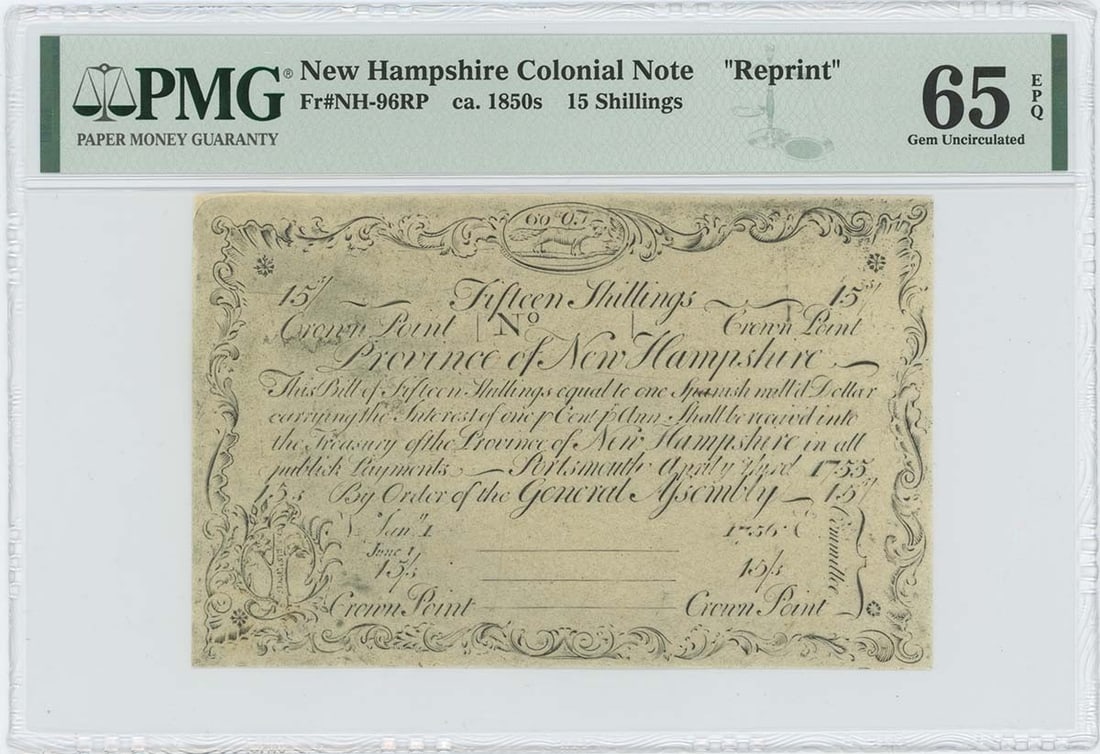 PMG® New Hampshire Colonial Note "Reprint" 65 EPQ
Fr#NH-96RP ca. 1850s 15 Shillings
PAPER MONEY GUARANTY Gem Uncirculated
15/ Fifteen Shillings 15
Crown Point No Crown Point
Province of New Hampshire
This Bill of Fifteen Shillings equal to one Spanish mill'd Dollar
carrying the Interest of one p Cent p Ann Shall be receivd into
the Treasury of the Province of New Hampshire in all
publick Payments Portsmouth April 1755
15s By Order of the General Assembly 15
Jan 1 1756
June 1
15/s 15/s
Committee
Crown Point Crown Point